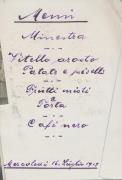 Menù
Minestra
Vitello arosto
Patate e piselli
Frutti misti
e
Torta
Cafè nero
Mercoledì 16 Luglio